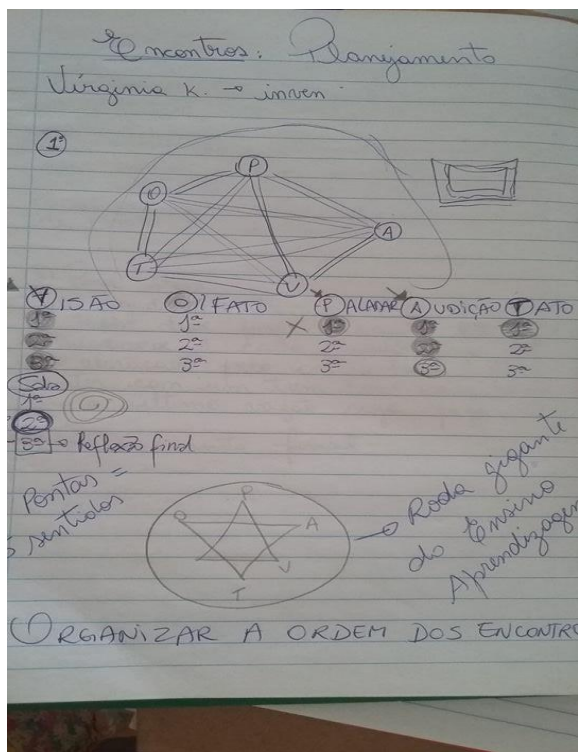 Encontros: Planejamento
Virginia K. → inven
1º
P
O
A
T
V
VISÃO OLFATO PALADAR AUDIÇÃO TATO
1ª 1ª X 1ª 1ª 1ª
2ª 2ª 2ª 2ª 2ª
3ª 3ª 3ª 3ª 3ª
1ª
2ª
3ª → Reflexão final
Pontas =
sentidos
P
O A
V
T
Roda gigante
do Ensino
Aprendizagem
ORGANIZAR A ORDEM DOS ENCONTRO